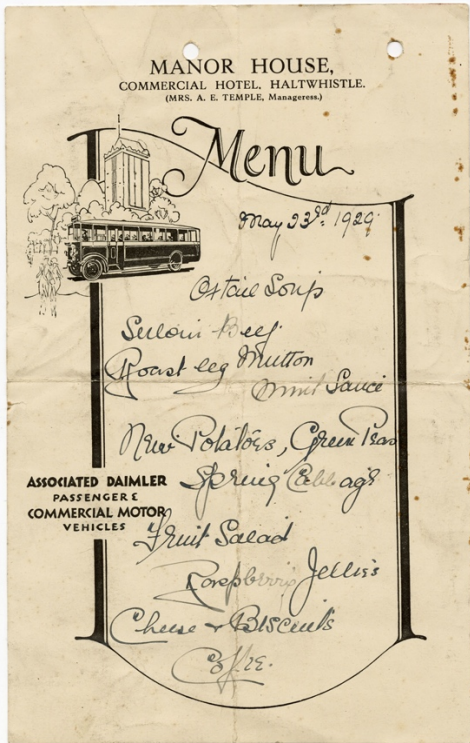 MANOR HOUSE,
COMMERCIAL HOTEL, HALTWHISTLE.
(MRS. A. E. TEMPLE, Manageress.)
Menu
May 23rd. 1929.
Oxtail Soup
Sirloin Beef
Roast leg Mutton
Mint Sauce
New Potatoes, Green Peas
Spring Cabbage
ASSOCIATED DAIMLER
PASSENGER &
COMMERCIAL MOTOR
VEHICLES
Fruit Salad
Raspberry Jellies
Cheese & Biscuits
Coffee.